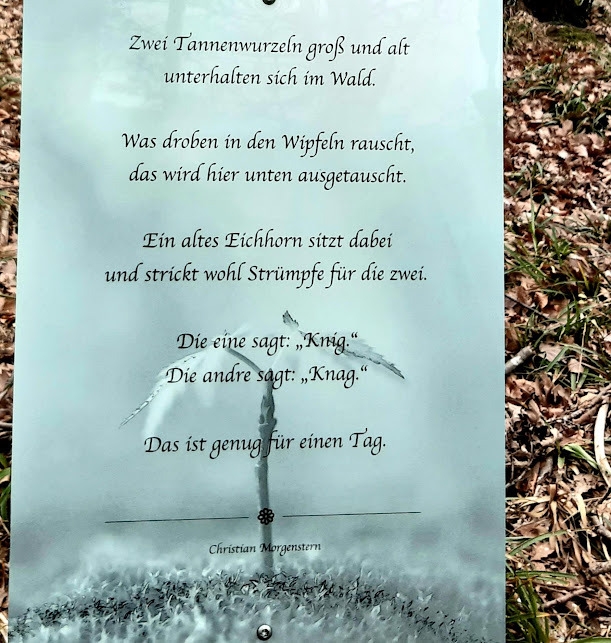 Zwei Tannenwurzeln groß und alt
unterhalten sich im Wald.
Was droben in den Wipfeln rauscht,
das wird hier unten ausgetauscht.
Ein altes Eichhorn sitzt dabei
und strickt wohl Strümpfe für die zwei.
Die eine sagt: „Knig.“
Die andre sagt: „Knag.“
Das ist genug für einen Tag.
Christian Morgenstern